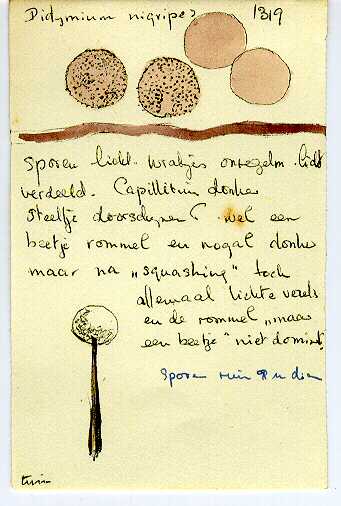 Didymium nigripes 1319
Sporen licht. wratjes onregelm. licht
verdeeld. Capillitium donker
steeltje doorschijnen? wel een
beetje rommel en nogal donker
maar na „squashing" toch
allemaal lichte vezels
en de rommel „maar
een beetje" niet domin.
Sporen
tuin